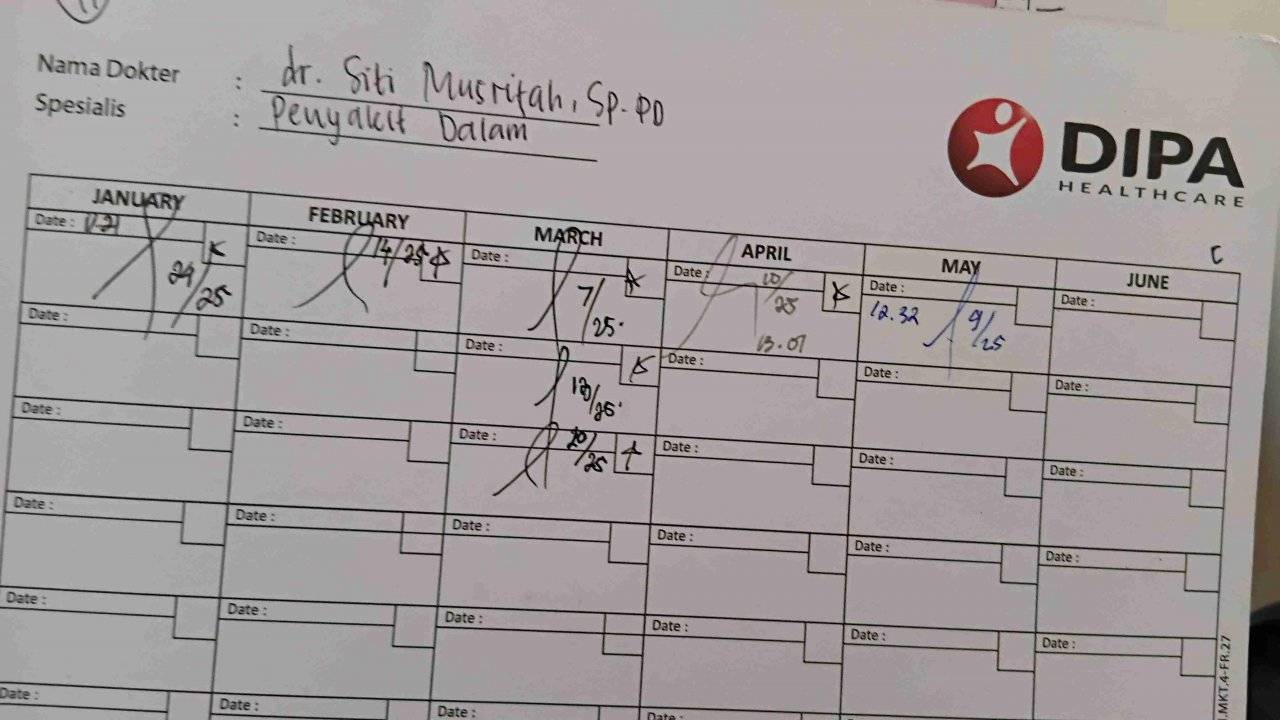 Nama Dokter : dr. Siti Musrifah, Sp.PD
Spesialis : Penyakit Dalam
DIPA
HEALTHCARE
C
JANUARY FEBRUARY MARCH APRIL MAY JUNE
Date : Date : 14/25 Date : Date : 10/25 Date : Date :
24/25 7/25 13.07 12.32 9/25
Date : Date : Date : Date : Date : Date :
13/25
Date : Date : Date : 20/25 Date : Date : Date :
Date : Date : Date : Date : Date : Date :
Date : Date : Date : Date : Date : Date :
Date : Date : Date : Date :
.MKT.4-FR.27